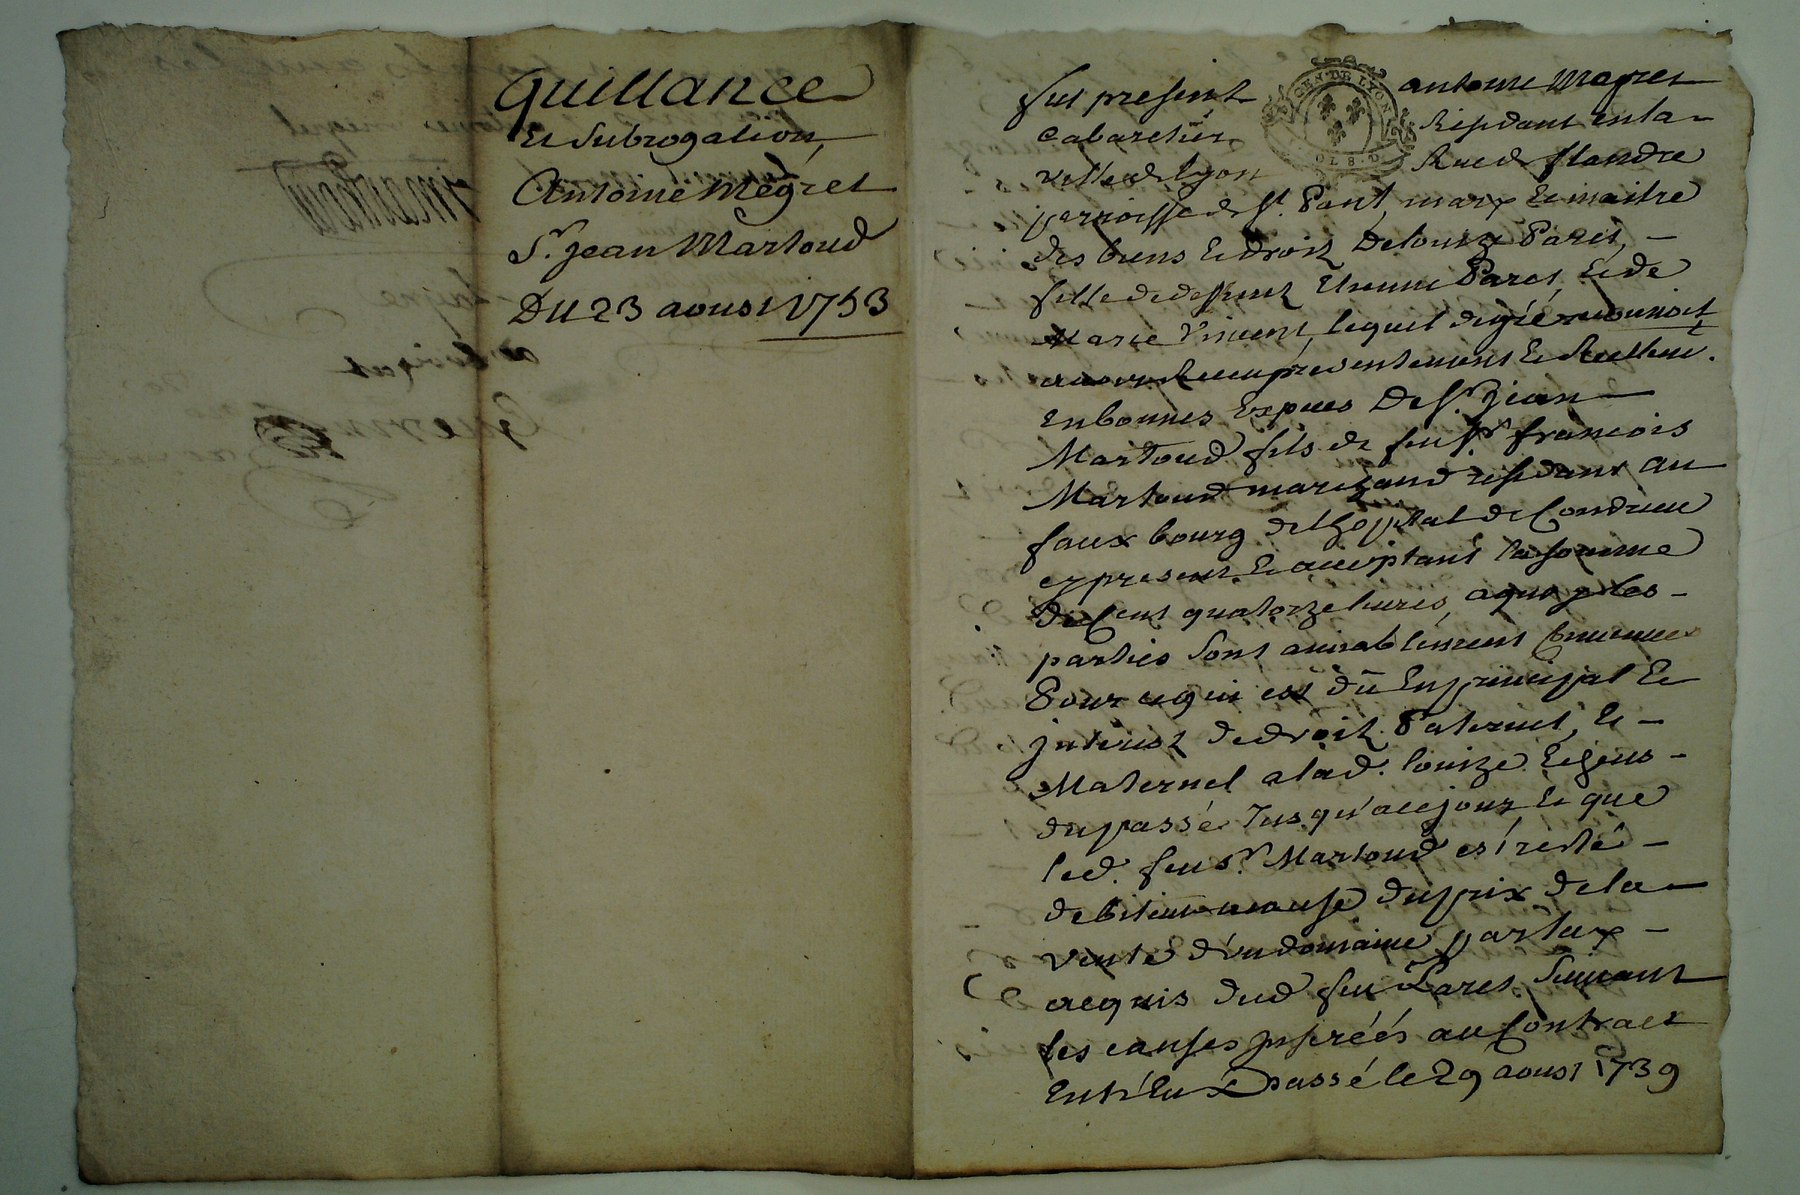 Quittance
Et Subrogation
Antoine Mégret
Sr. Jean Martoud
Du 23 aoust 1753
GEN. DE LYON
fut present antoine Megret
Cabaretier Residant en la
ville de lyon Rue de flandre
parroisse de st. Paul, mary et maitre
des biens et droits De louize Paret,
fille de deffunt Etienne Paret, et de
Marie Vincent, lequel de gré reconnoit
avoir Receu presentement et Reellem.
en bonnes Espèces De Sr. Jean
Martoud fils de feu Sr. francois
Martoud marchand residant au
faux bourg de l'hopital de Condrieu
cy present et acceptant la somme
de Cent quatorze livres, a quoy les
parties sont amiablement Convenues
Pour ce qui est dû En principal Et
Interest de droits Paternel, et
Maternel a lad. louize Et gens
du passé Jusqu'a ce jour, et que
led. feu Sr. Martoud est resté
debiteur a cause du prix de la
vente d'un domaine par luy
acquis dud feu Paret, Suivant
les causes Inserées au Contract
Entr'Eux Passé le 29 aoust 1739